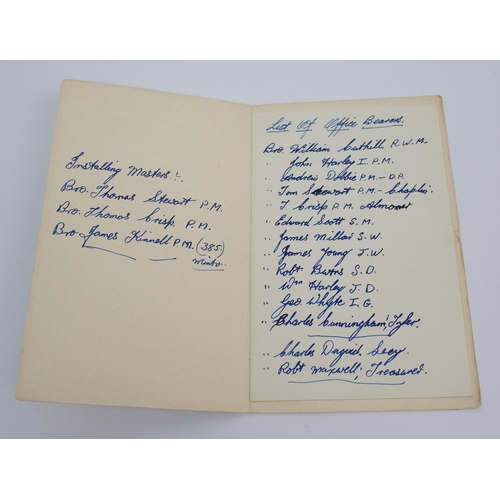 Installing Masters:-
Bro. Thomas Stewart P.M.
Bro. Thomas Crisp P.M.
Bro. James Kinnell P.M. (385)
Minto.
List Of Office Bearers.
Bro. William Cuthill R.W.M.
" John Harley I.P.M.
" Andrew Dobbie P.M. - D.P.
" Tom Stewart P.M. - Chaplin
" T Crisp P.M. Almoner
" Edward Scott S.M.
" James Millar S.W.
" James Young J.W.
" Robt Burns S.D.
" Wm Harley J.D.
" Geo Whyte I.G.
" Charles Cunningham, Tyler.
" Charles Duguid. Secy.
" Robt Maxwell; Treasurer.